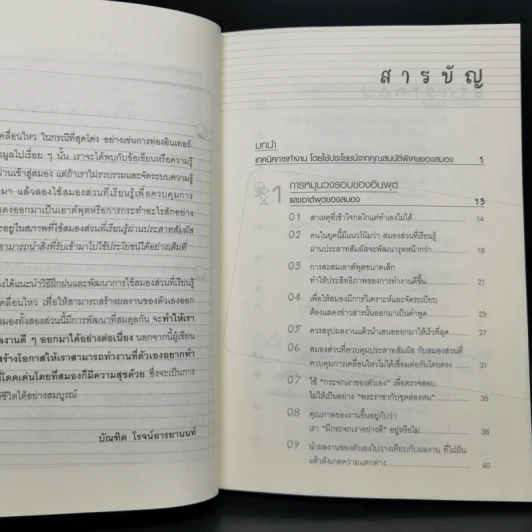 คลื่อนไหว ในกรณีที่สุดโต่ง อย่างเช่นการท่องอินเทอร์
มูลไปเรื่อย ๆ นั้น เราจะได้พบกับข้อเขียนหรือความรู้
่านเข้าสู่สมอง แต่ถ้าเราไม่รวบรวมและจัดระบบความรู้
มา แล้วลองใช้สมองส่วนที่เรียนรู้เพื่อควบคุมการ
สดงออกมาเป็นเอาต์พุตหรือการกระทำอะไรสักอย่าง
ะอยู่ในสภาพที่ใช้สมองส่วนที่เรียนรู้ผ่านประสาทสัมผัส
สามารถนำสิ่งที่รับเข้ามาไปใช้ประโยชน์ได้อย่างเต็มที่
งได้แนะนำวิธีฝึกฝนและพัฒนาการใช้สมองส่วนที่เรียนรู้
คลื่อนไหว เพื่อให้สามารถสร้างผลงานของตัวเองออก
มองทั้งสองส่วนนี้มีการพัฒนาที่สมดุลกัน จะทำให้เรา
ลงานดี ๆ ออกมาได้อย่างต่อเนื่อง นอกจากนี้ผู้เขียน
สร้างโอกาสให้เราสามารถทำงานที่ตัวเองอยากทำ
ที่โดดเด่นโดยที่สมองก็มีความสุขด้วย ซึ่งจะเป็นการ
ชีวิตได้อย่างสมบูรณ์
บัณฑิต โรจน์อารยานนท์
สารบัญ
บทนำ
เทคนิคการทำงาน โดยใช้ประโยชน์จากคุณสมบัติพิเศษของสมอง 1
1 การหมุนวงรอบของอินพุต
และเอาต์พุตของสมอง 13
01 สาเหตุที่เข้าใจกลไกแต่ทำเองไม่ได้ 14
02 คนในยุคนี้มีแนวโน้มว่า สมองส่วนที่เรียนรู้
ผ่านประสาทสัมผัสจะพัฒนารุดหน้ากว่า 19
03 การสะสมเอาต์พุตขนาดเล็ก
ทำให้ประสิทธิภาพของการทำงานดีขึ้น 21
04 เพื่อให้สมองมีการวิเคราะห์และจัดระเบียบ
ต้องแสดงข่าวสารนั้นออกมาเป็นคำพูด 23
05 ควรสรุปผลงานแล้วนำเสนอออกมาให้เร็วที่สุด 27
06 สมองส่วนที่ควบคุมประสาทสัมผัส กับสมองส่วนที่
ควบคุมการเคลื่อนไหวไม่ได้เชื่อมต่อกันโดยตรง 31
07 ใช้ "กระจกเงาของตัวเอง" เพื่อตรวจสอบ
ไม่ให้เป็นอย่าง "พระราชากับชุดล่องหน" 35
08 คุณภาพของงานขึ้นอยู่กับว่า
เรา "มีกระจกเงาอย่างดี" อยู่หรือไม่ 38
09 นำผลงานของตัวเองไปวางเทียบกับผลงาน ที่ใฝ่ฝัน
แล้วสังเกตความแตกต่าง 40